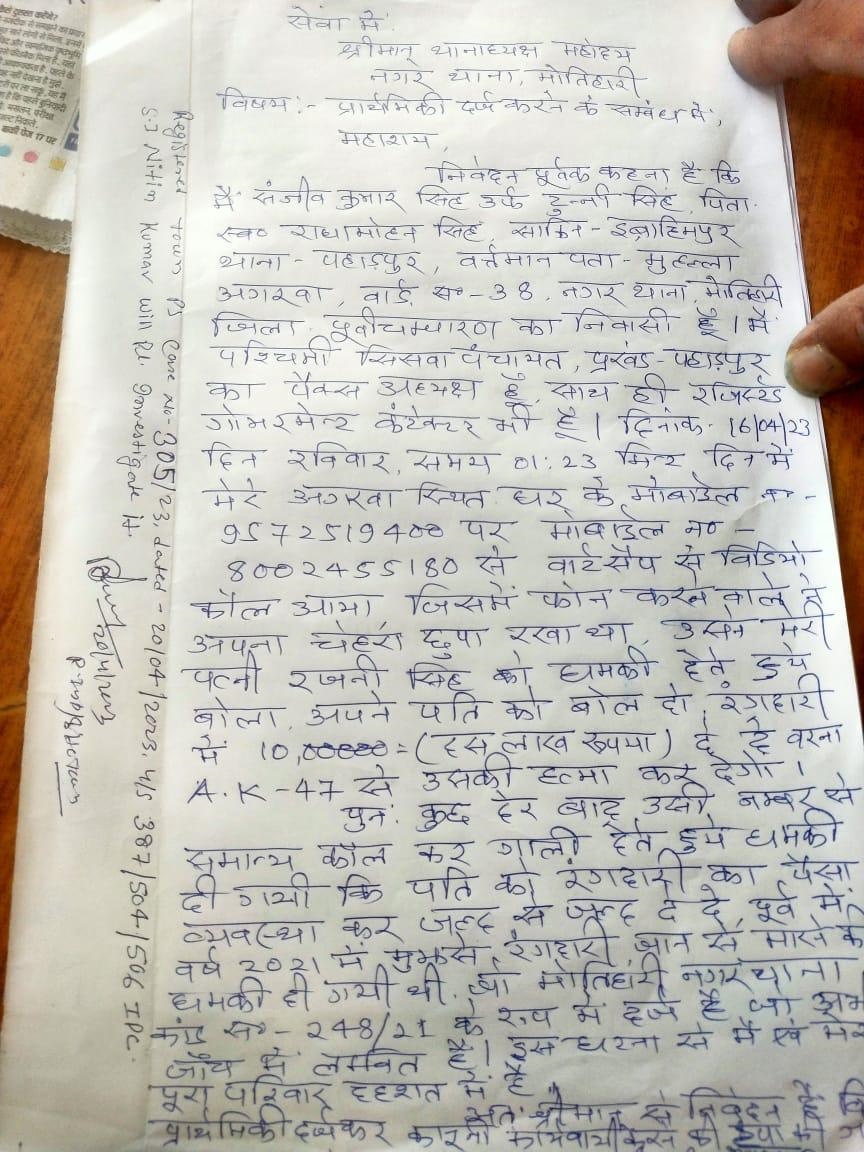 सेवा में
श्रीमान् थानाध्यक्ष महोदय
नगर थाना, मोतिहारी
विषय:- प्राथमिकी दर्ज करने के सम्बंध में,
महाशय,
निवेदन पूर्वक कहना है कि
मैं संजीव कुमार सिंह उर्फ टुन्नी सिंह, पिता-
स्व० राधामोहन सिंह, साकिन - इब्राहिमपुर
थाना - पहाड़पुर, वर्त्तमान पता - मुहल्ला
अगरवा, वार्ड स० - 38, नगर थाना, मोतिहारी
जिला - पूर्वीचम्पारण का निवासी हूँ। मैं
पश्चिमी सिसवा पंचायत, प्रखंड - पहाड़पुर
का पैक्स अध्यक्ष हूँ, साथ ही रजिस्टर्ड
गोभरमेन्ट कंटेक्टर भी हूँ। दिनांक- 16/04/23
दिन रविवार, समय 01:23 मिनट दिन में
मेरे अगरवा स्थित घर के मोबाईल न० -
9572519400 पर मोबाईल न० -
8002455180 से वाटसैप से विडियो
कौल आया जिसमें फोन करने वाले ने
अपना चेहरा छुपा रखा था, उसने मेरी
पत्नी रजनी सिंह को धमकी देते हुये
बोला, अपने पति को बोल दो, रंगदारी
में 10,00000 = (दस लाख रूपया) दे दे वरना
A.K-47 से उसकी हत्या कर देंगे।
पुन: कुछ देर बाद उसी नम्बर से
समान्य कॉल कर गाली देते हुये धमकी
दी गयी कि पति को रंगदारी का पैसा
व्यवस्था कर जल्द से जल्द दे दे, पूर्व में
वर्ष 2021 में मुझसे रंगदारी, जान से मारने की
धमकी दी गयी थी, जो मोतिहारी नगर थाना
कांड स० - 248/21 के रूप में दर्ज है जो अभी
जाँच में लम्बित है। इस घटना से मैं एवं मेरा
पूरा परिवार दहशत में है
अत: श्रीमान् से निवेदन है कि
प्राथमिकी दर्ज कर कानूनी कार्यवायी करने की कृपा की
Registered Town PS Case No - 305/23, dated - 20/04/2023, U/S 387/504/506 IPC.
S.I Nitin Kumar will pl. investigate it.
20/4/2023